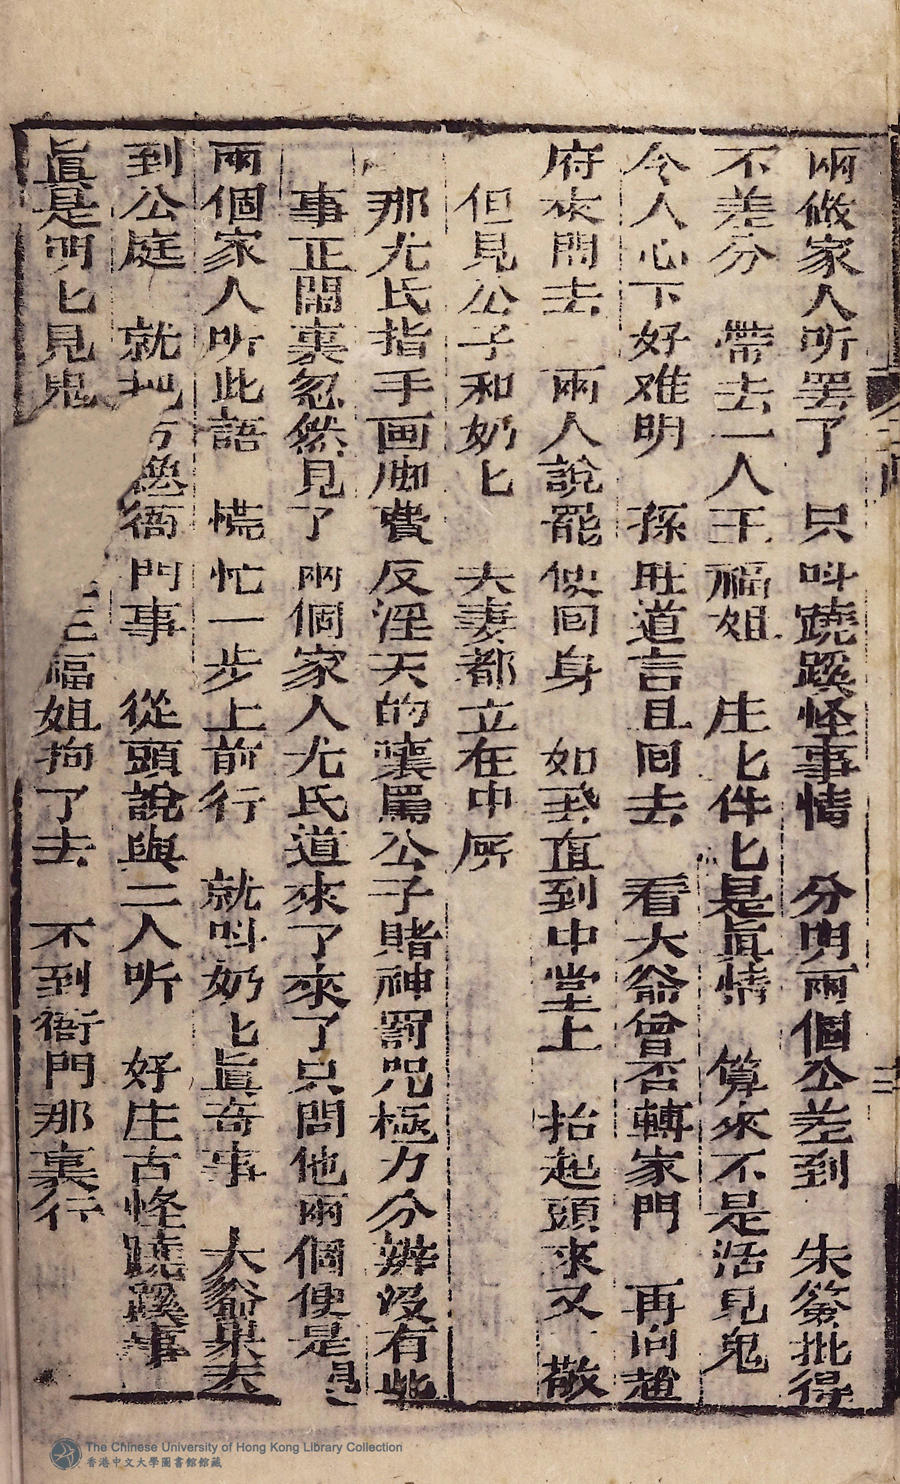 兩做家人听罢了 只叫蹺蹊怪事情 分明兩個公差到 朱簽批得
不差分 帶去一人王福姐 庄匕件匕是眞情 算來不是活見鬼
令人心下好难明 孫旺道言且囘去 看大爺曾否轉家門 再向趙
府來問去 兩人說罷便囘身 如飛直到中堂上 抬起頭來又一敬
但見公子和奶匕 夫妻都立在中所
那尤氏指手画脚費反淫天的嚷罵公子賭神罰咒極力分辨没有此
事正閙裏忽然見了兩個家人尤氏道來了來了只問他兩個便是
兩個家人听此語 慌忙一步上前行 就叫奶匕眞奇事 大爺果去
到公庭 就把 衙門事 從頭說與二人听 好庄古怪蹺蹊事
眞是明匕見鬼 福姐拘了去 不到衙門那裏行
The Chinese University of Hong Kong Library Collection
香港中文大學圖書館館藏